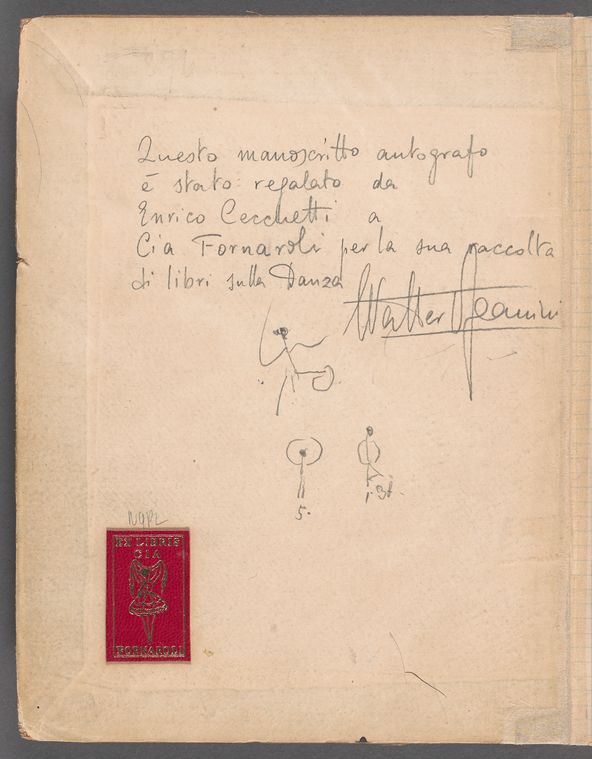 Questo manoscritto autografo
è stato regalato da
Enrico Cecchetti a
Cia Fornaroli per la sua raccolta
di libri sulla Danza
Walter
5.
NYPL
EX LIBRIS
CIA
FORNAROLI